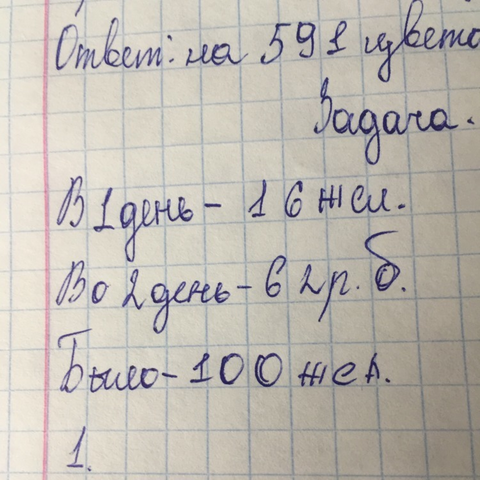 Ответ: на 591 цвето
Задача.
В 1 день - 16 жел.
Во 2 день - в 2 р. б.
Было - 100 жел.
1.